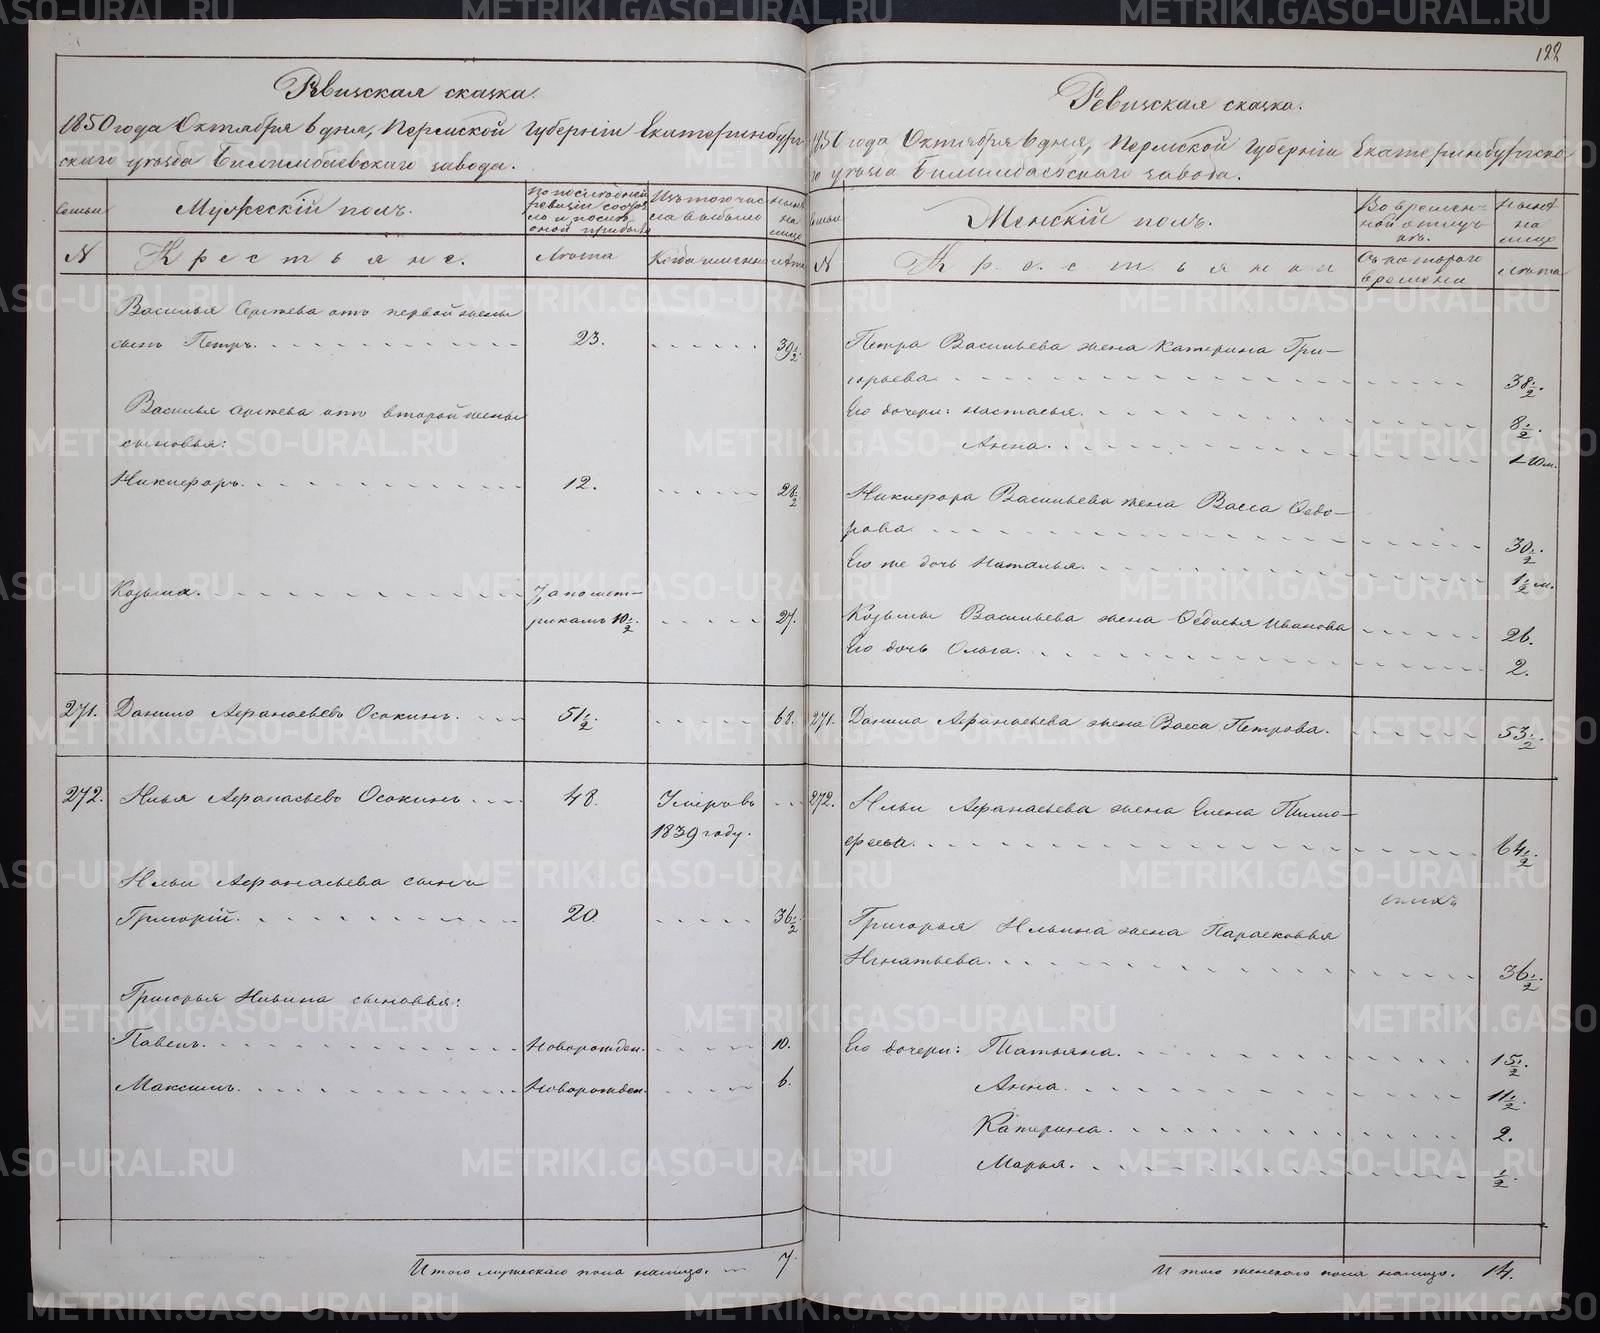 122
Ревизская сказка.
1850 года Октября 6 дня, Пермской Губернiи Екатеринбург-
скаго уезда Билимбаевскаго завода.
Семьи
Мужескiй полъ.
По последней ревизiи состояло и после оной прибыло
Изъ того числа выбыло
Ныне на лицо
N
Крестьяне.
Лета
Когда именно
Лета
Василья Сергеева отъ первой жены
сынъ Петръ. 23. 39 1/2
Василья Сергеева отъ второй жены
сыновья:
Никифоръ. 12. 28 1/2
Козьма. 7, а по мет-
рикамъ 10 1/2. 27.
271. Данило Афанасьевъ Осокинъ. 51 1/2. 68.
272. Илья Афанасьевъ Осокинъ. 48. Умеръ въ
1839 году.
Ильи Афанасьева сынъ
Григорiй. 20. 36 1/2.
Григорья Ильина сыновья:
Павелъ. Новорожден. 10.
Максимъ. Новорожден. 6.
Итого мужескаго пола налицо. 7.
Ревизская сказка.
1850 года Октября 6 дня, Пермской Губернiи Екатеринбургска-
го уезда Билимбаевскаго завода.
Семьи
Женскiй полъ.
Во временной отлучке
Ныне на лицо
N
Крестьянки
Съ котораго времени
Лета
Петра Васильева жена Катерина Гри-
горьева. 38 1/2.
Его дочери: Настасья. 8 1/2.
Анна. 1-10 м.
Никифора Васильева жена Васса Федо-
рова. 30 1/2.
Его же дочь Наталья. 1 1/2 м.
Козьмы Васильева жена Федосья Иванова 26.
Его дочь Ольга. 2.
271. Данила Афанасьева жена Васса Петрова. 53 1/2.
272. Ильи Афанасьева жена Елена Тимо-
феева. 64 1/2.
Григорья Ильина жена Парасковья
Игнатьева. 36 1/2.
Его дочери: Татьяна. 15 1/2.
Анна. 11 1/2.
Катерина. 2.
Марья. 1/2.
Итого женскаго пола налицо. 14.
METRIKI.GASO-URAL.RU